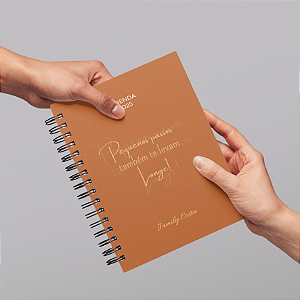 AGENDA
2025
Pequenos passos
também te levam
Longe!
Family Costa